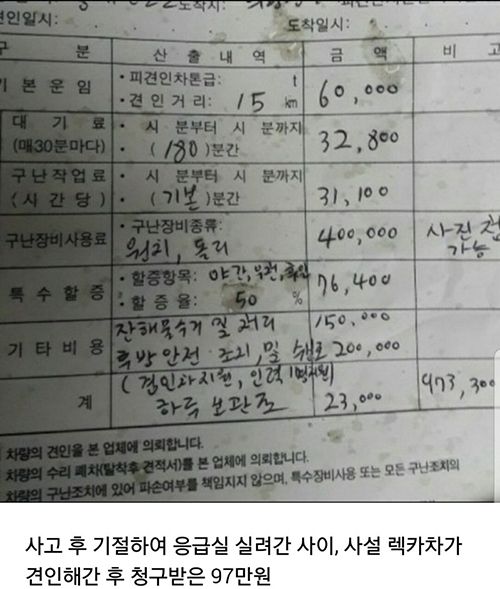 견인일시:
도착시:
도착일시:
구 분 산 출 내 역 금 액 비 고
기 본 운 임 · 피견인차톤급: t 60,000
· 견 인 거 리 : 15 km
대 기 료 · 시 분부터 시 분까지 32,800
(매30분마다) · ( 180 )분간
구난작업료 · 시 분부터 시 분까지 31,100
( 시 간 당 ) · ( 기본 )분간
구난장비사용료 · 구난장비종류: 400,000 사진 첨
윈치, 돌리 가능
특 수 할 증 · 할증항목: 야간, 우천, 휴일 76,400
· 할 증 율 : 50 %
기 타 비 용 잔해물수거 및 처리 150,000
후방안전조치, 및 200,000
(견인차지원, 인력 1명지원)
계 하루 보관료 23,000 973,300
차량의 견인을 본 업체에 의뢰합니다.
차량의 수리 폐차(탈착후 견적서)를 본 업체에 의뢰합니다.
차량의 구난조치에 있어 파손여부를 책임지지 않으며, 특수장비사용 또는 모든 구난조치의
사고 후 기절하여 응급실 실려간 사이, 사설 렉카차가
견인해간 후 청구받은 97만원